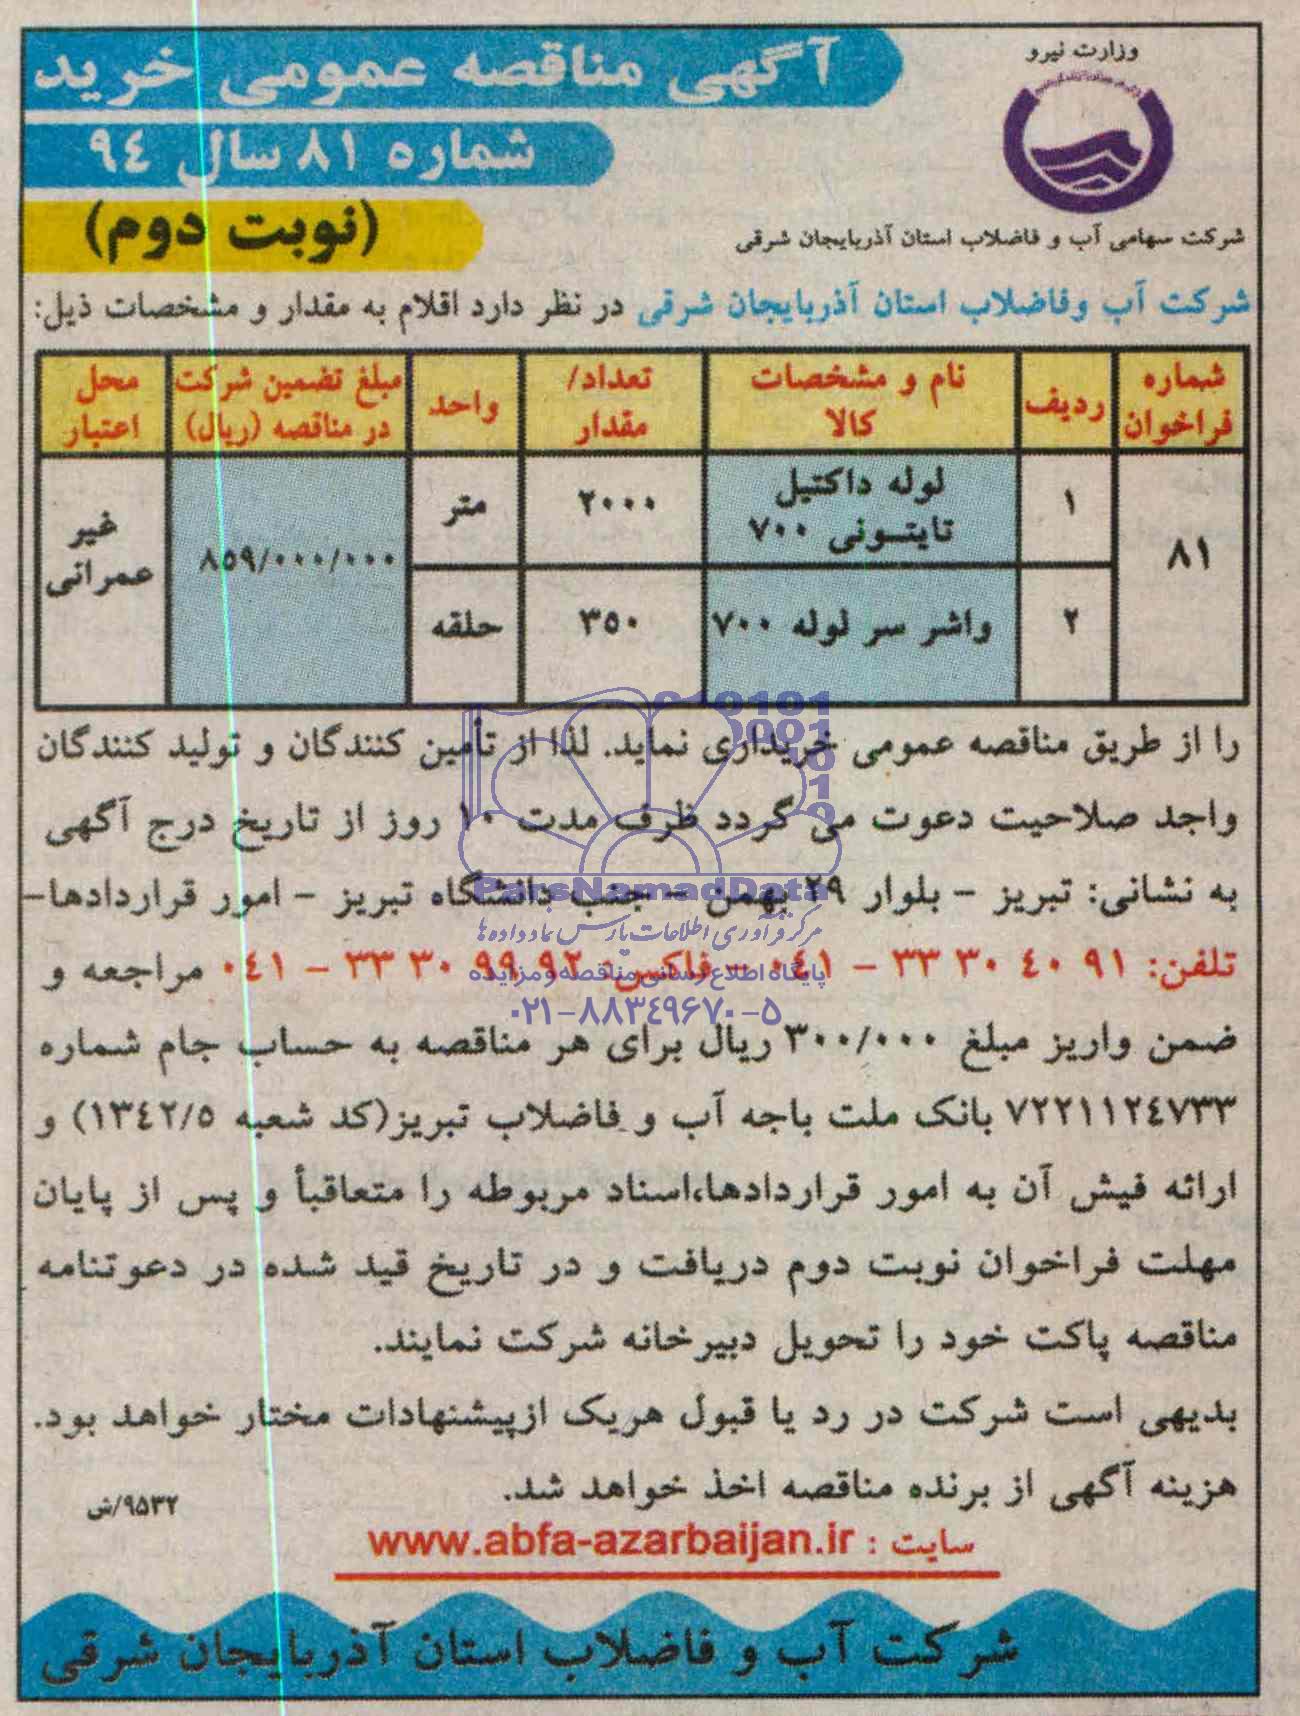 وزارت نیرو
شرکت سهامی آب و فاضلاب استان آذربایجان شرقی
آگهی مناقصه عمومی خرید
شماره ۸۱ سال ۹٤
(نوبت دوم)
شرکت آب وفاضلاب استان آذربایجان شرقی در نظر دارد اقلام به مقدار و مشخصات ذیل:
شماره فراخوان ردیف نام و مشخصات کالا تعداد/مقدار واحد مبلغ تضمین شرکت در مناقصه (ریال) محل اعتبار
۸۱ ۱ لوله داکتیل تایتونی ۷۰۰ ۲۰۰۰ متر ۸۵۹/۰۰۰/۰۰۰ غیر عمرانی
۲ واشر سر لوله ۷۰۰ ۳۵۰ حلقه
را از طریق مناقصه عمومی خریداری نماید. لذا از تأمین کنندگان و تولید کنندگان
واجد صلاحیت دعوت می گردد ظرف مدت ۱۰ روز از تاریخ درج آگهی
به نشانی: تبریز - بلوار ۲۹ بهمن - جنب دانشگاه تبریز - امور قراردادها-
تلفن: ۹۱ ٤۰ ۳۰ ۳۳ - ۰٤۱ - فاکس: ۹۲ ۹۹ ۳۰ ۳۳ - ۰٤۱ مراجعه و
ضمن واریز مبلغ ۳۰۰/۰۰۰ ریال برای هر مناقصه به حساب جام شماره
۷۲۲۱۱۲٤۷۳۳ بانک ملت باجه آب و فاضلاب تبریز(کد شعبه ۱۳٤۲/۵) و
ارائه فیش آن به امور قراردادها،اسناد مربوطه را متعاقباً و پس از پایان
مهلت فراخوان نوبت دوم دریافت و در تاریخ قید شده در دعوتنامه
مناقصه پاکت خود را تحویل دبیرخانه شرکت نمایند.
بدیهی است شرکت در رد یا قبول هریک ازپیشنهادات مختار خواهد بود.
هزینه آگهی از برنده مناقصه اخذ خواهد شد.
۹۵۳۲/ش
سایت : www.abfa-azarbaijan.ir
شرکت آب و فاضلاب استان آذربایجان شرقی
ParsNamadData
مرکز فرآوری اطلاعات پارس نماد داده ها
پایگاه اطلاع رسانی مناقصه و مزایده
۰۲۱-۸۸۳٤۹۶۷۰-۵